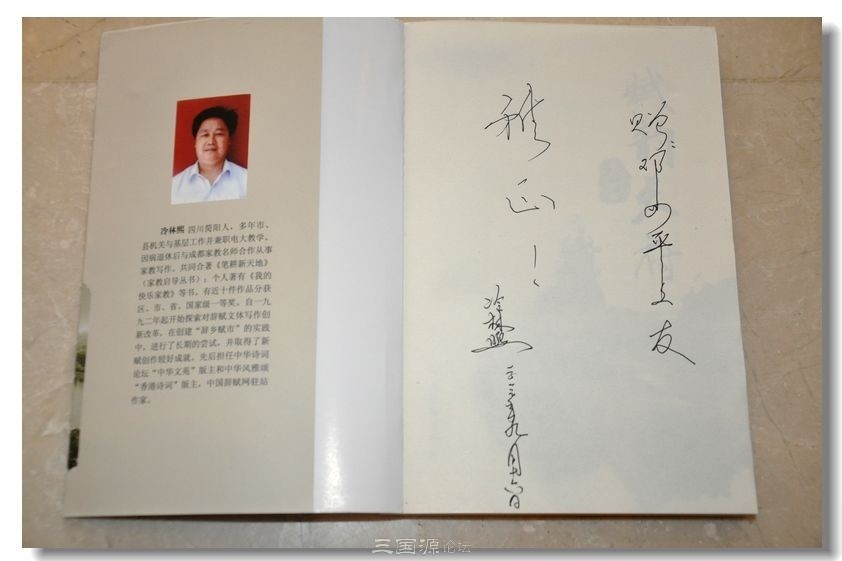 冷林熙 四川简阳人，多年市、
县机关与基层工作并兼职电大教学，
因病退休后与成都家教名师合作从事
家教写作，共同合著《笔耕新天地》
（家教启导丛书）；个人著有《我的
快乐家教》等书，有近十件作品分获
区、市、省、国家级一等奖。自一九
九二年起开始探索对辞赋文体写作创
新改革，在创建“辞乡赋市”的实践
中，进行了长期的尝试，并取得了新
赋创作较好成就，先后担任中华诗词
论坛“中华文苑”版主和中华风雅颂
“香港诗词”版主，中国辞赋网驻站
作家。
赠：邓小平文友
雅正！
冷林熙
二〇一三年九月十六日
三国源论坛